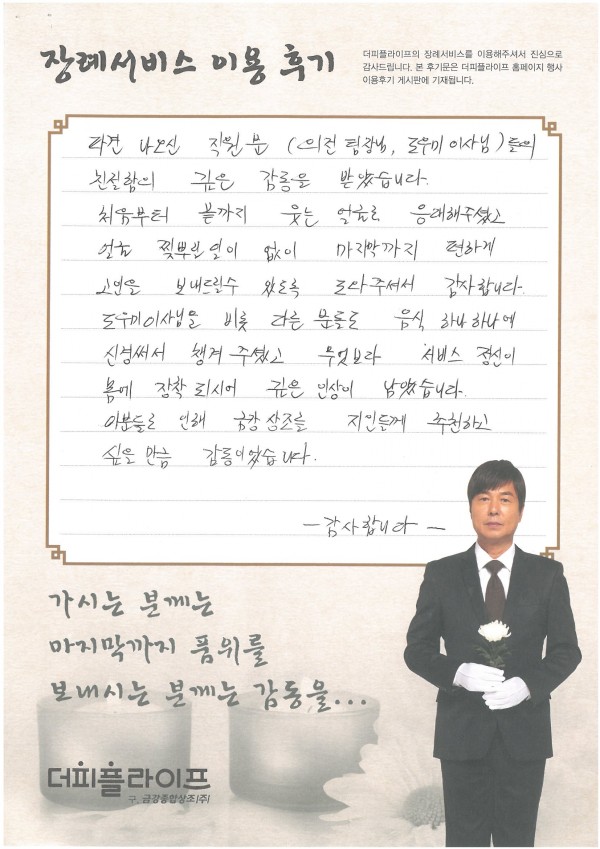 장례서비스 이용 후기
더피플라이프의 장례서비스를 이용해주셔서 진심으로
감사드립니다. 본 후기문은 더피플라이프 홈페이지 행사
이용후기 게시판에 기재됩니다.
파견 나오신 직원분 (의전 팀장님, 도우미 이사님)들의
친절함의 깊은 감동을 받았습니다.
처음부터 끝까지 웃는 얼굴로 응대해주셨고
얼굴 찢뿌린 일이 없이 마지막까지 편하게
고인을 보내드릴수 있도록 도와주셔서 감사합니다.
도우미이사님을 비롯 다른 분들도 음식 하나하나에
신경써서 챙겨 주셨고 무엇보다 서비스 정신이
몸에 장착 되시어 깊은 인상이 남았습니다.
이분들로 인해 금강 상조를 지인들께 추천하고
싶을 만큼 감동이었습니다.
- 감사합니다 -
가시는 분께는
마지막까지 품위를
보내시는 분께는 감동을...
더피플라이프
구. 금강종합상조(주)